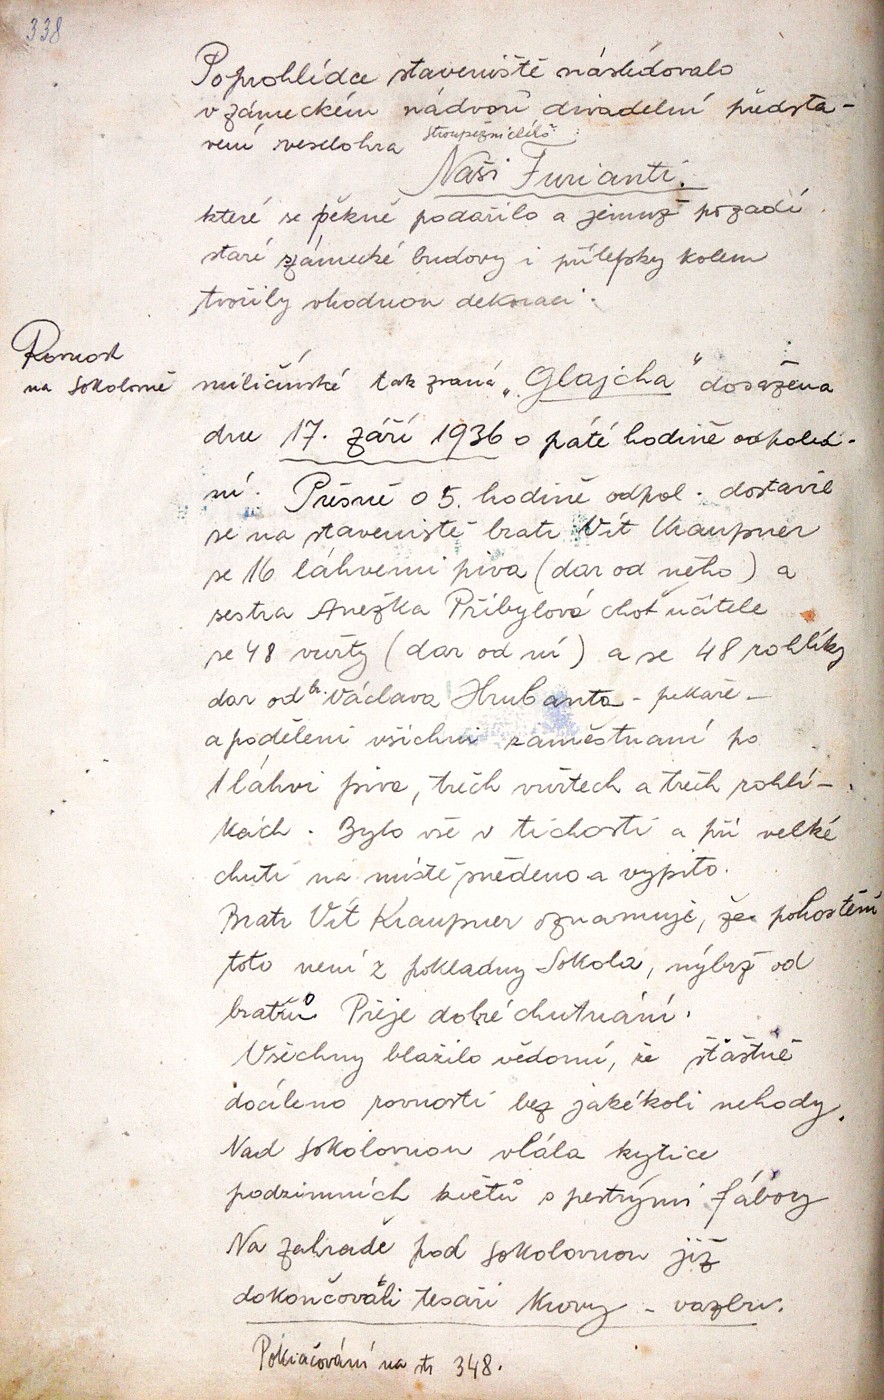 338
Po prohlídce staveniště následovalo
v zámeckém nádvoří divadelní předsta-
vení veselohra Stroupežnického:
Naši Furianti.
které se pěkně podařilo a jemuž pozadí
staré zámecké budovy i přílepky kolem
tvořily vhodnou dekoraci.
Rovnost
na sokolovně
miličínské tak zvaná „Glajcha" dosažena
dne 17. září 1936 o páté hodině odpoled-
ní. Přesně o 5. hodině odpol. dostavil
se na staveniště bratr Vít Kraupner
se 16 láhvemi piva (dar od něho) a
sestra Anežka Přibylová choť učitele
se 48 vuřty (dar od ní) a se 48 rohlíky
dar od br. Václava Hrubanta - pekaře -
a poděleni všichni zaměstnaní po
1 láhvi piva, třech vuřtech a třech rohlí-
kách. Bylo vše v tichosti a při velké
chuti na místě snědeno a vypito.
Bratr Vít Kraupner oznamuje, že pohostění
toto není z pokladny Sokola, nýbrž od
bratrů Přeje dobré chutnání.
Všechny blažilo vědomí, že šťastně
docíleno rovnosti bez jakékoli nehody.
Nad sokolovnou vlála kytice
podzimních květů s pestrými fábory
Na zahradě pod sokolovnou již
dokončovali tesaři krovy - vazbu.
Pokračování na str 348.